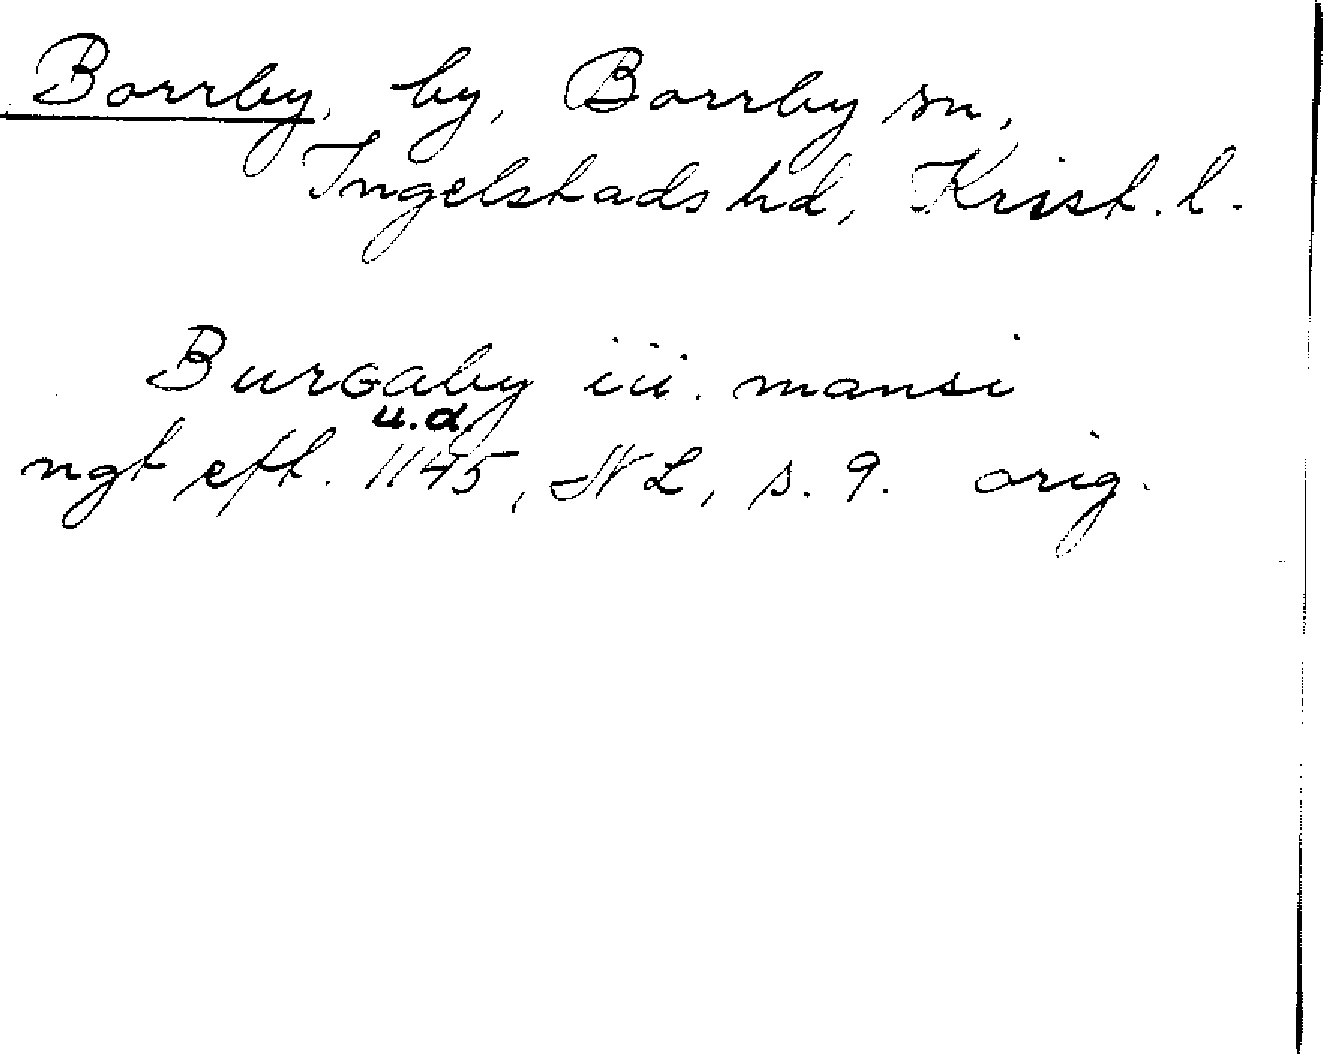 Borrby, by, Borrby sn,
Ingelstads hd, Krist. l.
Burgaby iii. mansi
u.d.
ngt eft. 1145, NL, s. 9. orig.